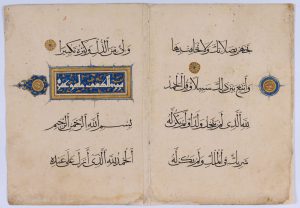 تجهر بصلاتك ولا تخافت بها
وابتغ بين ذلك سبيلا وقل الحمد
لله الذي لم يتخذ ولدا ولم يكن له
شريك في الملك ولم يكن له
ولي من الذل وكبره تكبيرا
سورة الكهف
بسم الله الرحمن الرحيم
الحمد لله الذي أنزل على عبده